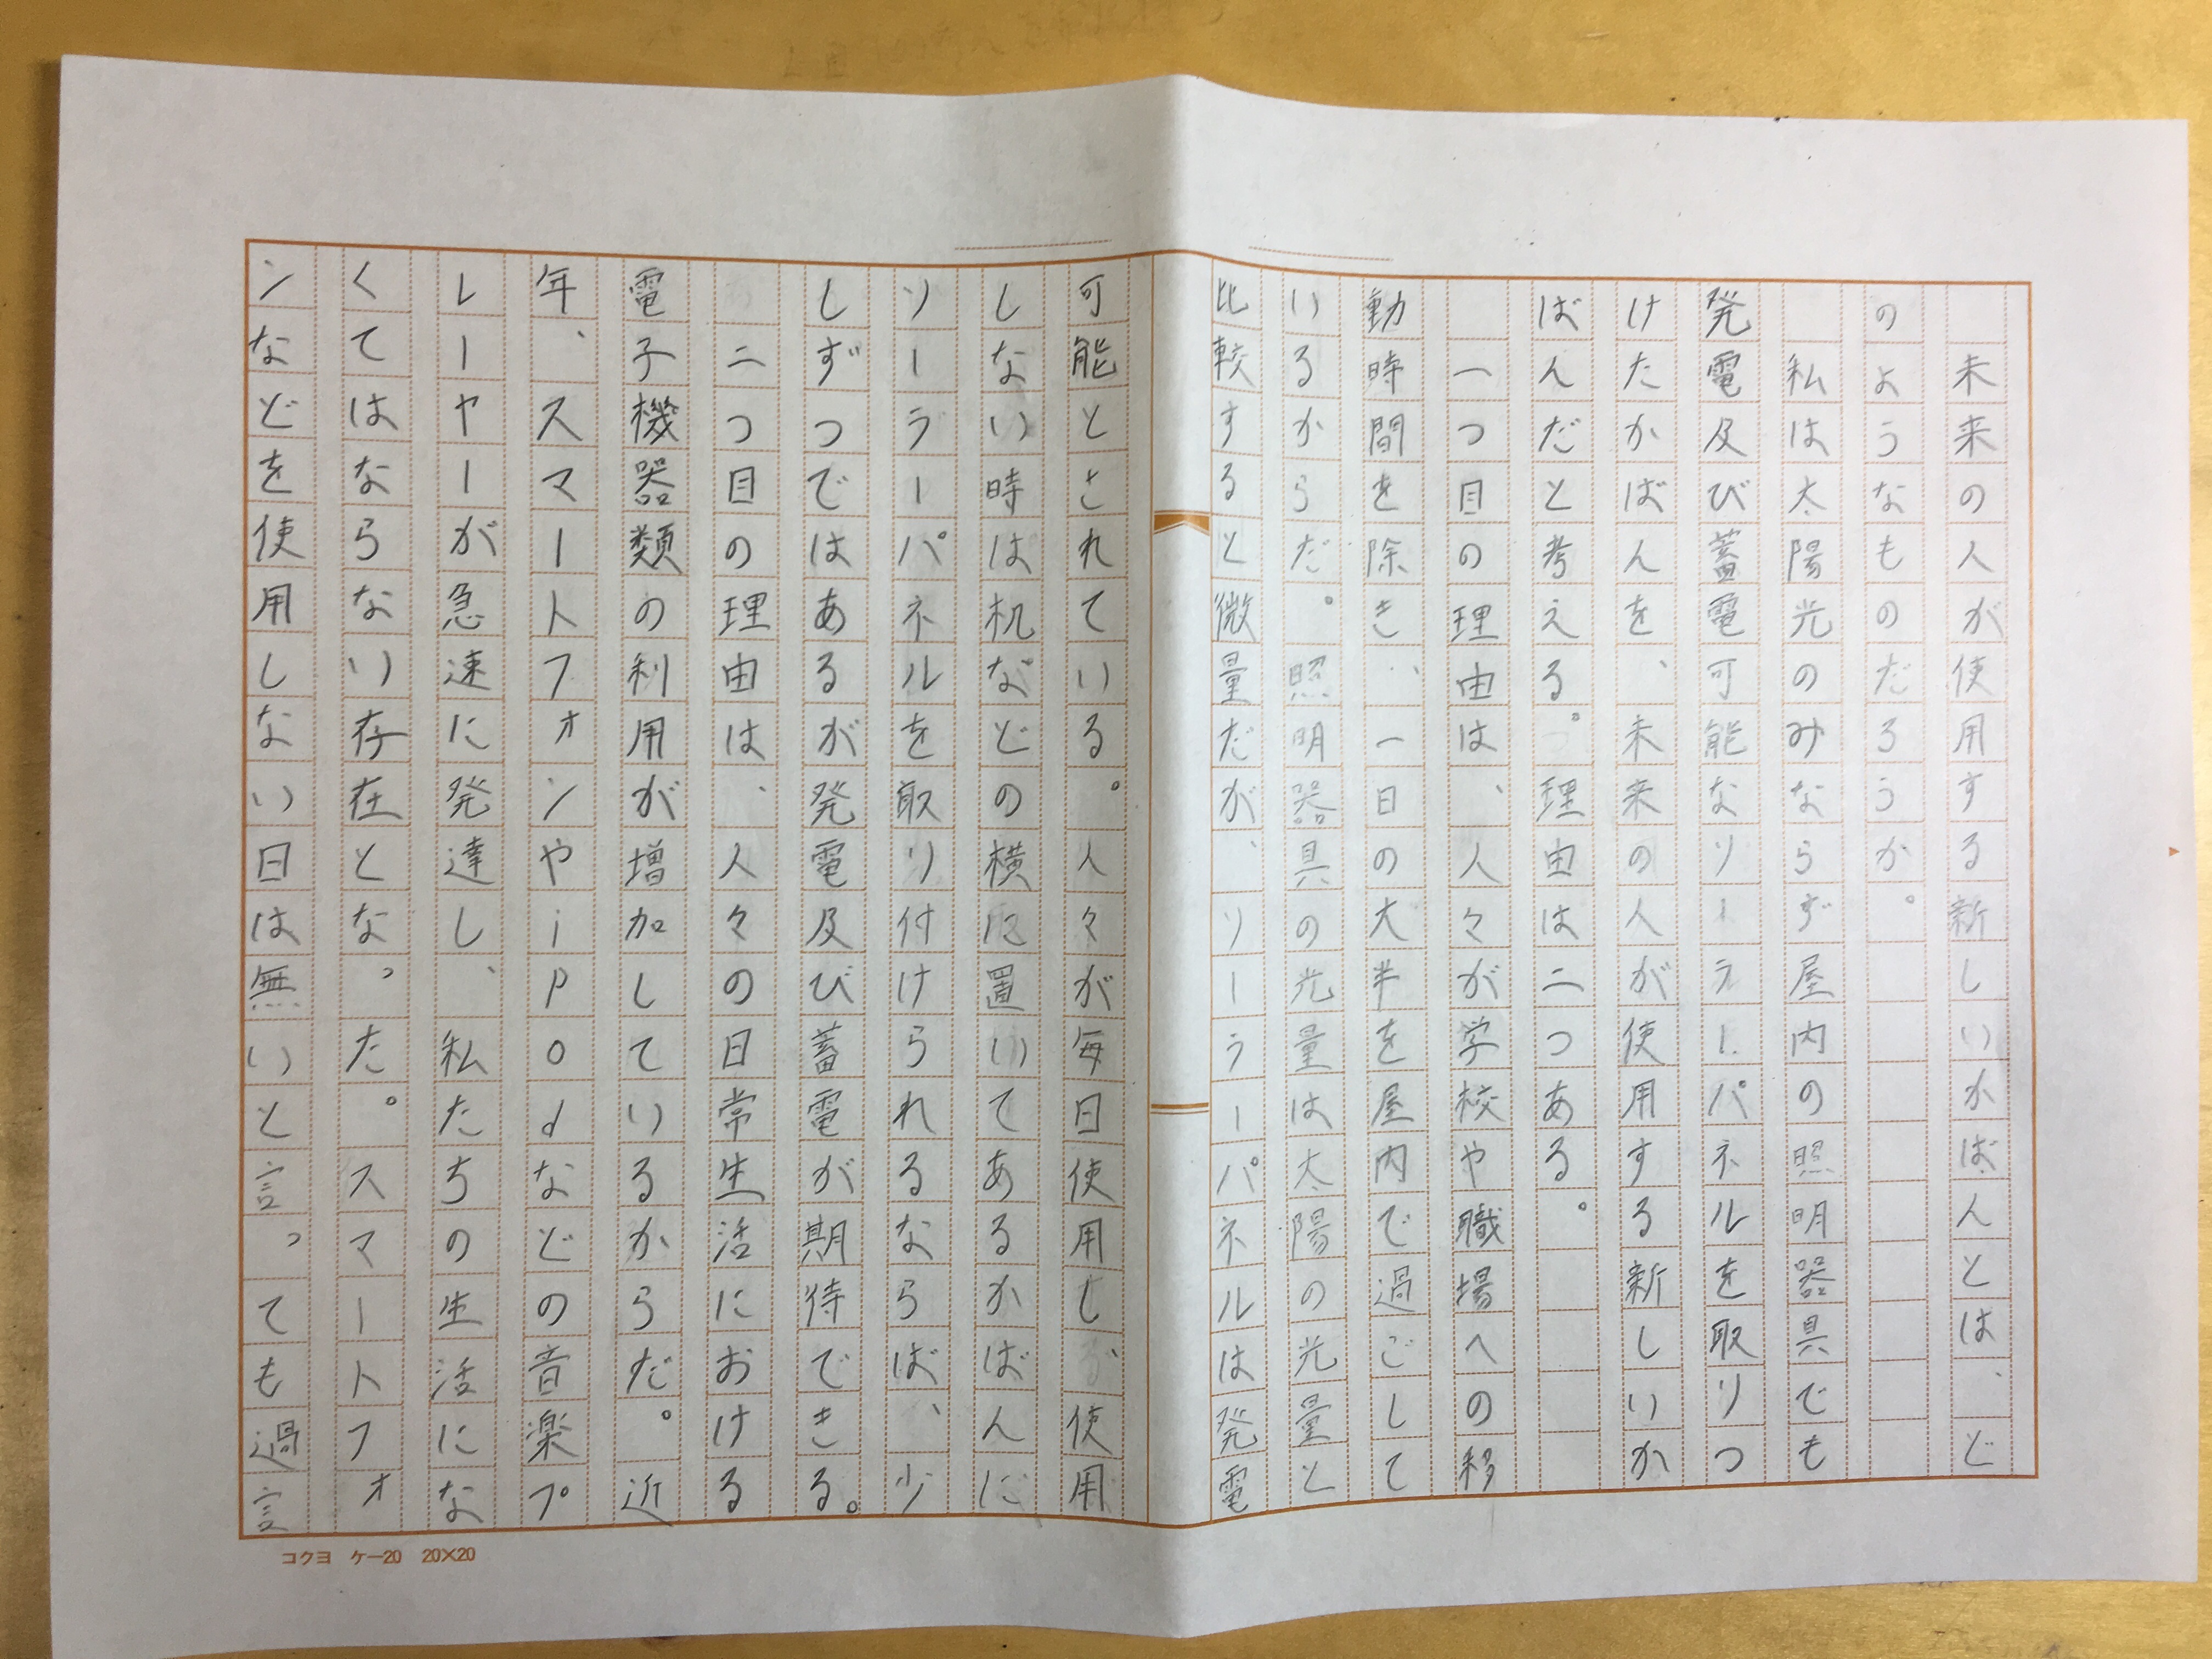 未来の人が使用する新しいかばんとは、ど
のようなものだろうか。
私は太陽光のみならず屋内の照明器具でも
発電及び蓄電可能なソーラーパネルを取りつ
けたかばんを、未来の人が使用する新しいか
ばんだと考える。理由は二つある。
一つ目の理由は、人々が学校や職場への移
動時間を除き、一日の大半を屋内で過ごして
いるからだ。照明器具の光量は太陽の光量と
比較すると微量だが、ソーラーパネルは発電
可能とされている。人々が毎日使用し使用
しない時は机などの横に置いてあるかばんに
ソーラーパネルを取り付けられるならば、少
しずつではあるが発電及び蓄電が期待できる。
二つ目の理由は、人々の日常生活における
電子機器類の利用が増加しているからだ。近
年、スマートフォンやiPodなどの音楽プ
レーヤーが急速に発達し、私たちの生活にな
くてはならない存在となった。スマートフォ
ンなどを使用しない日は無いと言っても過言
コクヨ ケー20 20×20